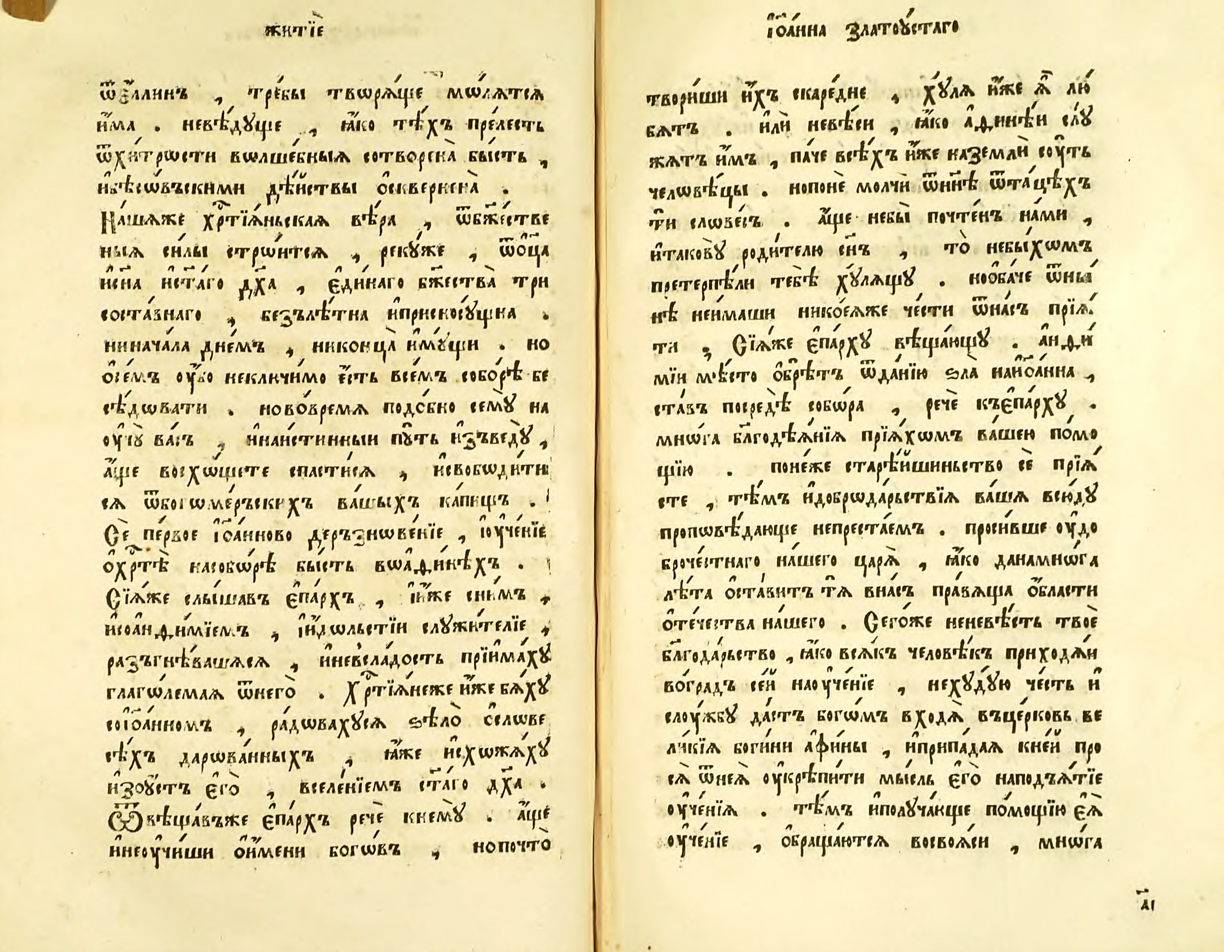 житїѐ
ѿэ҆́ллинъ , тре́бы творѧ́ще мо́лѧтсѧ
и҆́ма . невѣ́дуще , ꙗ҆́ко тѣ́хъ пре́лесть
ѿхи́трѡсти вѡлше́бныѧ сотворенà бы́сть ,
ибѣсѡ́въскими дѣ́йствы ѡ҆сквернена̀ .
На́шѧже хрⷭ҇тїѧ́ньскаѧ вѣ́ра , ѿбж҃е́стве
ныѧ си́лы стрѡ́итсѧ , реку́же , ѿѻ҆ц҃а̀
исн҃а ист҃а́го дх҃а , є҆ди́наго бж҃ества̀ три
соста́внаго , безълѣ́тна иприсносу́щна .
ниначáла дне́мъ , никонца̀ и҆му́щи . но
ѡ҆се́мъ ѹ҆́бо неключи́мо є҆́сть всѣ́мъ собо́рѣ бе
сѣ́дѡвати . ново́времѧ подо́бно семꙋ̀ на
ѹчꙋ̀ ва́съ , инаи́стинныи пꙋ́ть и҆зъведꙋ̀ ,
а҆́ще восхѡ́щете спасти́сѧ , исвобѡди́ти
сѧ ѿбогѡме́рьскихъ ва́шыхъ ка́пищъ .
Сѐ пе́рвое і҆ѡа́нново дерьзнѡве́нїе , іѹче́нїе
ѡ҆хрⷭ҇тѣ̀ насобо́рѣ бы́сть вѡаѳи́нѣхъ .
Сїѧ́же слы́шавъ є҆па́рхъ , ии҆́же сни́мъ ,
исоанѳи́мїемъ , і҆и҆́дѡльстїи служи́телїе ,
разъгнѣ́вашасѧ , иневсла́дость прїима́хꙋ
глаго́лемаѧ ѿнегѡ̀ . Хрⷭ҇тїѧ́неже и҆́же бѧ́хꙋ
соі҆ѡа́нномъ , ра́дѡвахꙋсѧ ѕѣлѡ̀ ѡ҆слѡве
сѣ́хъ дарѡва́нныхъ , ꙗ҆́же и҆схѡжа́хꙋ
и҆зоу́стъ є҆гѡ̀ , вселе́нїемъ ст҃а́го дх҃а .
Ѿвѣща́въже є҆па́рхъ речѐ кнемꙋ̀ . а҆́ще
инеѹчи́ши ѡ҆и҆́мени бого́въ , нопочтѡ̀
і҆ѡа́нна златоу́стаго
твори́ши и҆́хъ скаре́дне , хꙋ́лѧ и҆́же ѧ҆̀ лю́
бѧтъ . и҆лѝ невѣ́си , ꙗ҆́ко аѳинѣ́и слꙋ́
жѧтъ и҆̀мъ , па́че всѣ́хъ и҆́же наземлѝ сꙋ́ть
человѣ́цы . нопонѐ молчѝ ѿнн҃ѣ ѿта́цѣхъ
ти слѡ́весъ . а҆́ще небы̀ почте́нъ на́ми ,
итакѡ́вꙋ роди́телю сн҃ъ , то̀ небы́хѡмъ
претерпѣ́ли тебѣ̀ хꙋ́лѧщꙋ . нооба́че ѿны
нѣ неи́маши никоеѧ́же че́сти ѿна́съ прїѧ́
ти , Сїѧ́же є҆па́рхꙋ вѣща́ющꙋ . анѳи́
мїи мѣ́сто ѡ҆брѣ́тъ ѿда́нїю ѕла̀ наіѡа́нна ,
ста́въ посредѣ̀ собо́ра , речѐ къєпа́рхꙋ .
мнѡ́га бл҃годѣѧ́нїѧ прїѧ́хѡмъ ва́шею по́мо
щїю . поне́же старѣ́йшиньство сѐ прїѧ́
сте , тѣ́мъ идобрѡда́рьствїѧ ва́шѧ всю́дꙋ
проповѣ́дающе непреста́емъ . проси́вше оу҆до
брочестнаго на́шего царѧ̀ , ꙗ҆́ко данамнѡ́га
лѣ́та ѡ҆ста́витъ тѧ̀ вна́съ пра́вѧща ѻ҆́бласти
ѻ҆те́чества на́шего . Сего́же неневѣ́сть твоѐ
бл҃года́рьство , ꙗ҆́ко всѧ́къ человѣ́къ приходѧ́и
во́градъ се́й наоу҆че́нїе , нехꙋ́дую че́сть и҆
слоу́жбꙋ да́стъ бого́мъ входѧ̀ въце́рковь ве
ли́кїѧ боги́ни аѳи́ны , иприпа́даѧ кне́й про
сѧ̀ ѿнеѧ̀ оу҆крѣпи́ти мы́сль є҆гѡ̀ наподъѧ́тїе
оу҆че́нїѧ . тѣ́мъ иполꙋча́юще по́мощїю є҆ѧ̀
оу҆че́нїе , ѡ҆браща́ютсѧ восвоѧ́си , мнѡ́га
а҃і